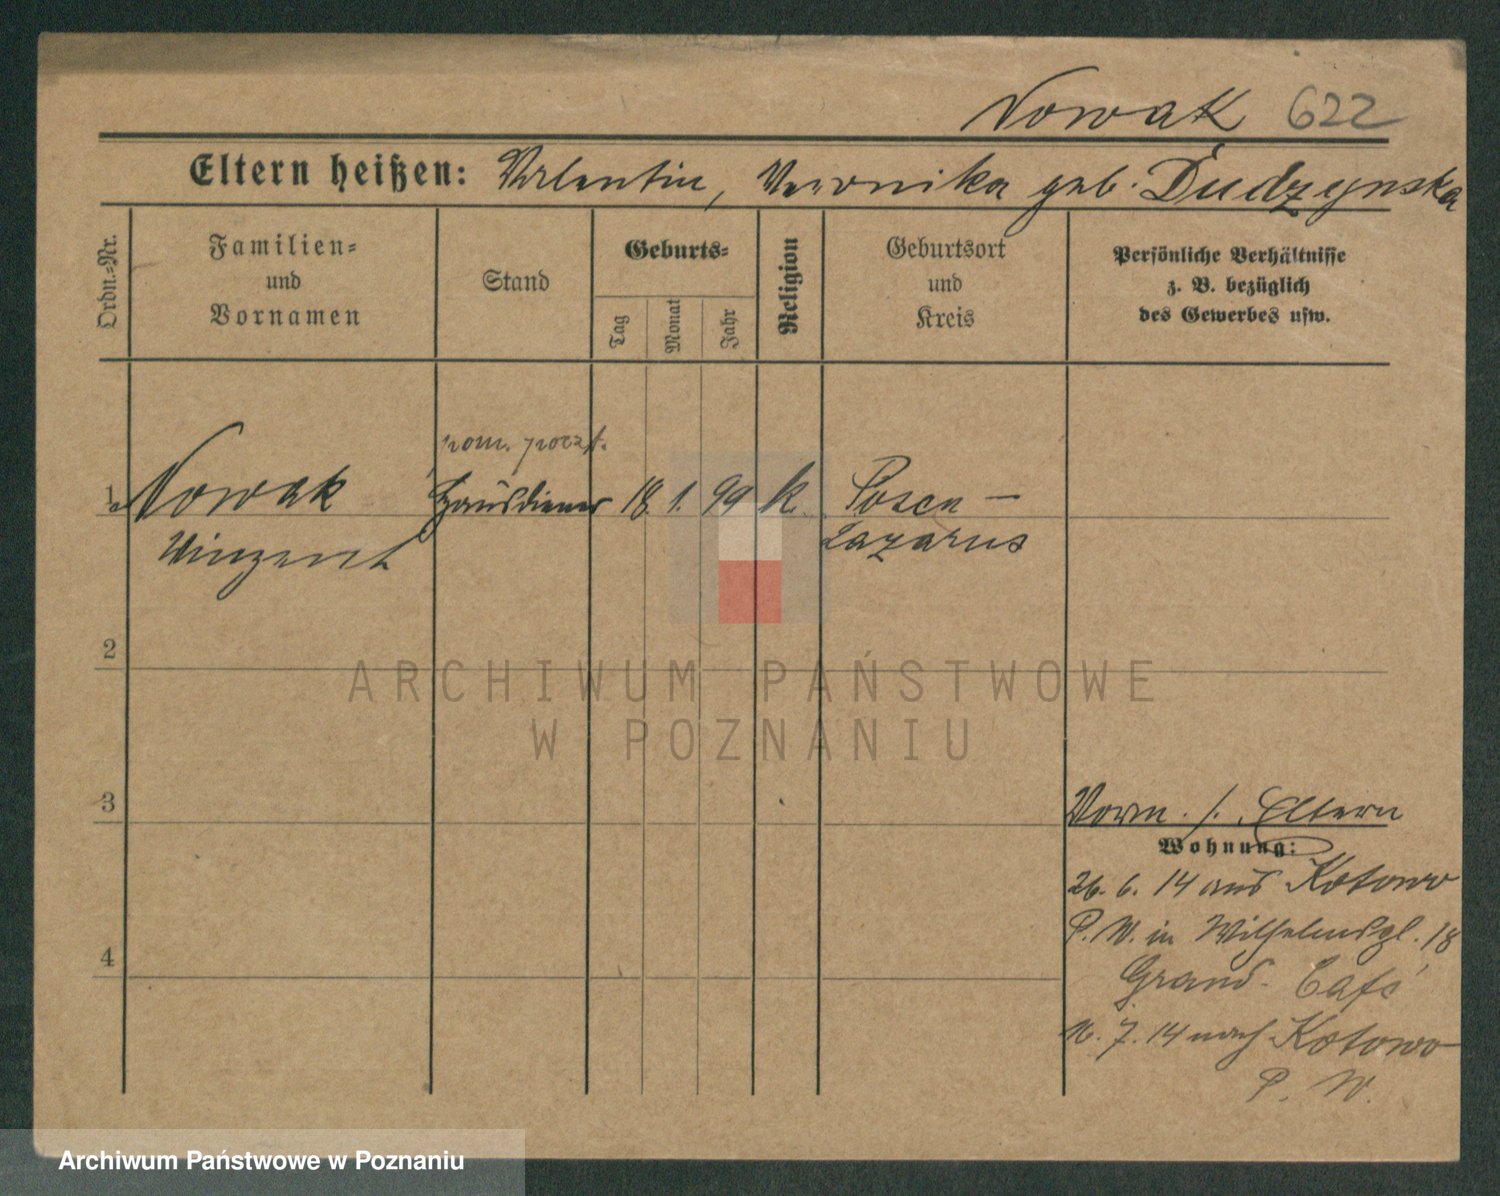 Nowak 622
Eltern heißen: Valentin, Veronika geb. Dudzynska
Ordn.=Nr.
Familien=
und
Vornamen
Stand
Geburts=
Tag
Monat
Jahr
Religion
Geburtsort
und
Kreis
Persönliche Verhältnisse
z. B. bezüglich
des Gewerbes usw.
pom. poczt.
1 Nowak Hausdiener 18. 1. 99 k. Posen –
Winzent Lazarus
2
ARCHIWUM PAŃSTWOWE
W POZNANIU
3
Vorm. s. Eltern
Wohnung:
26. 6. 14 aus Kotowo
P. W. in Wilhelmspl. 18
4
Grand-Café
16. 7. 14 nach Kotowo
P. W.
Archiwum Państwowe w Poznaniu